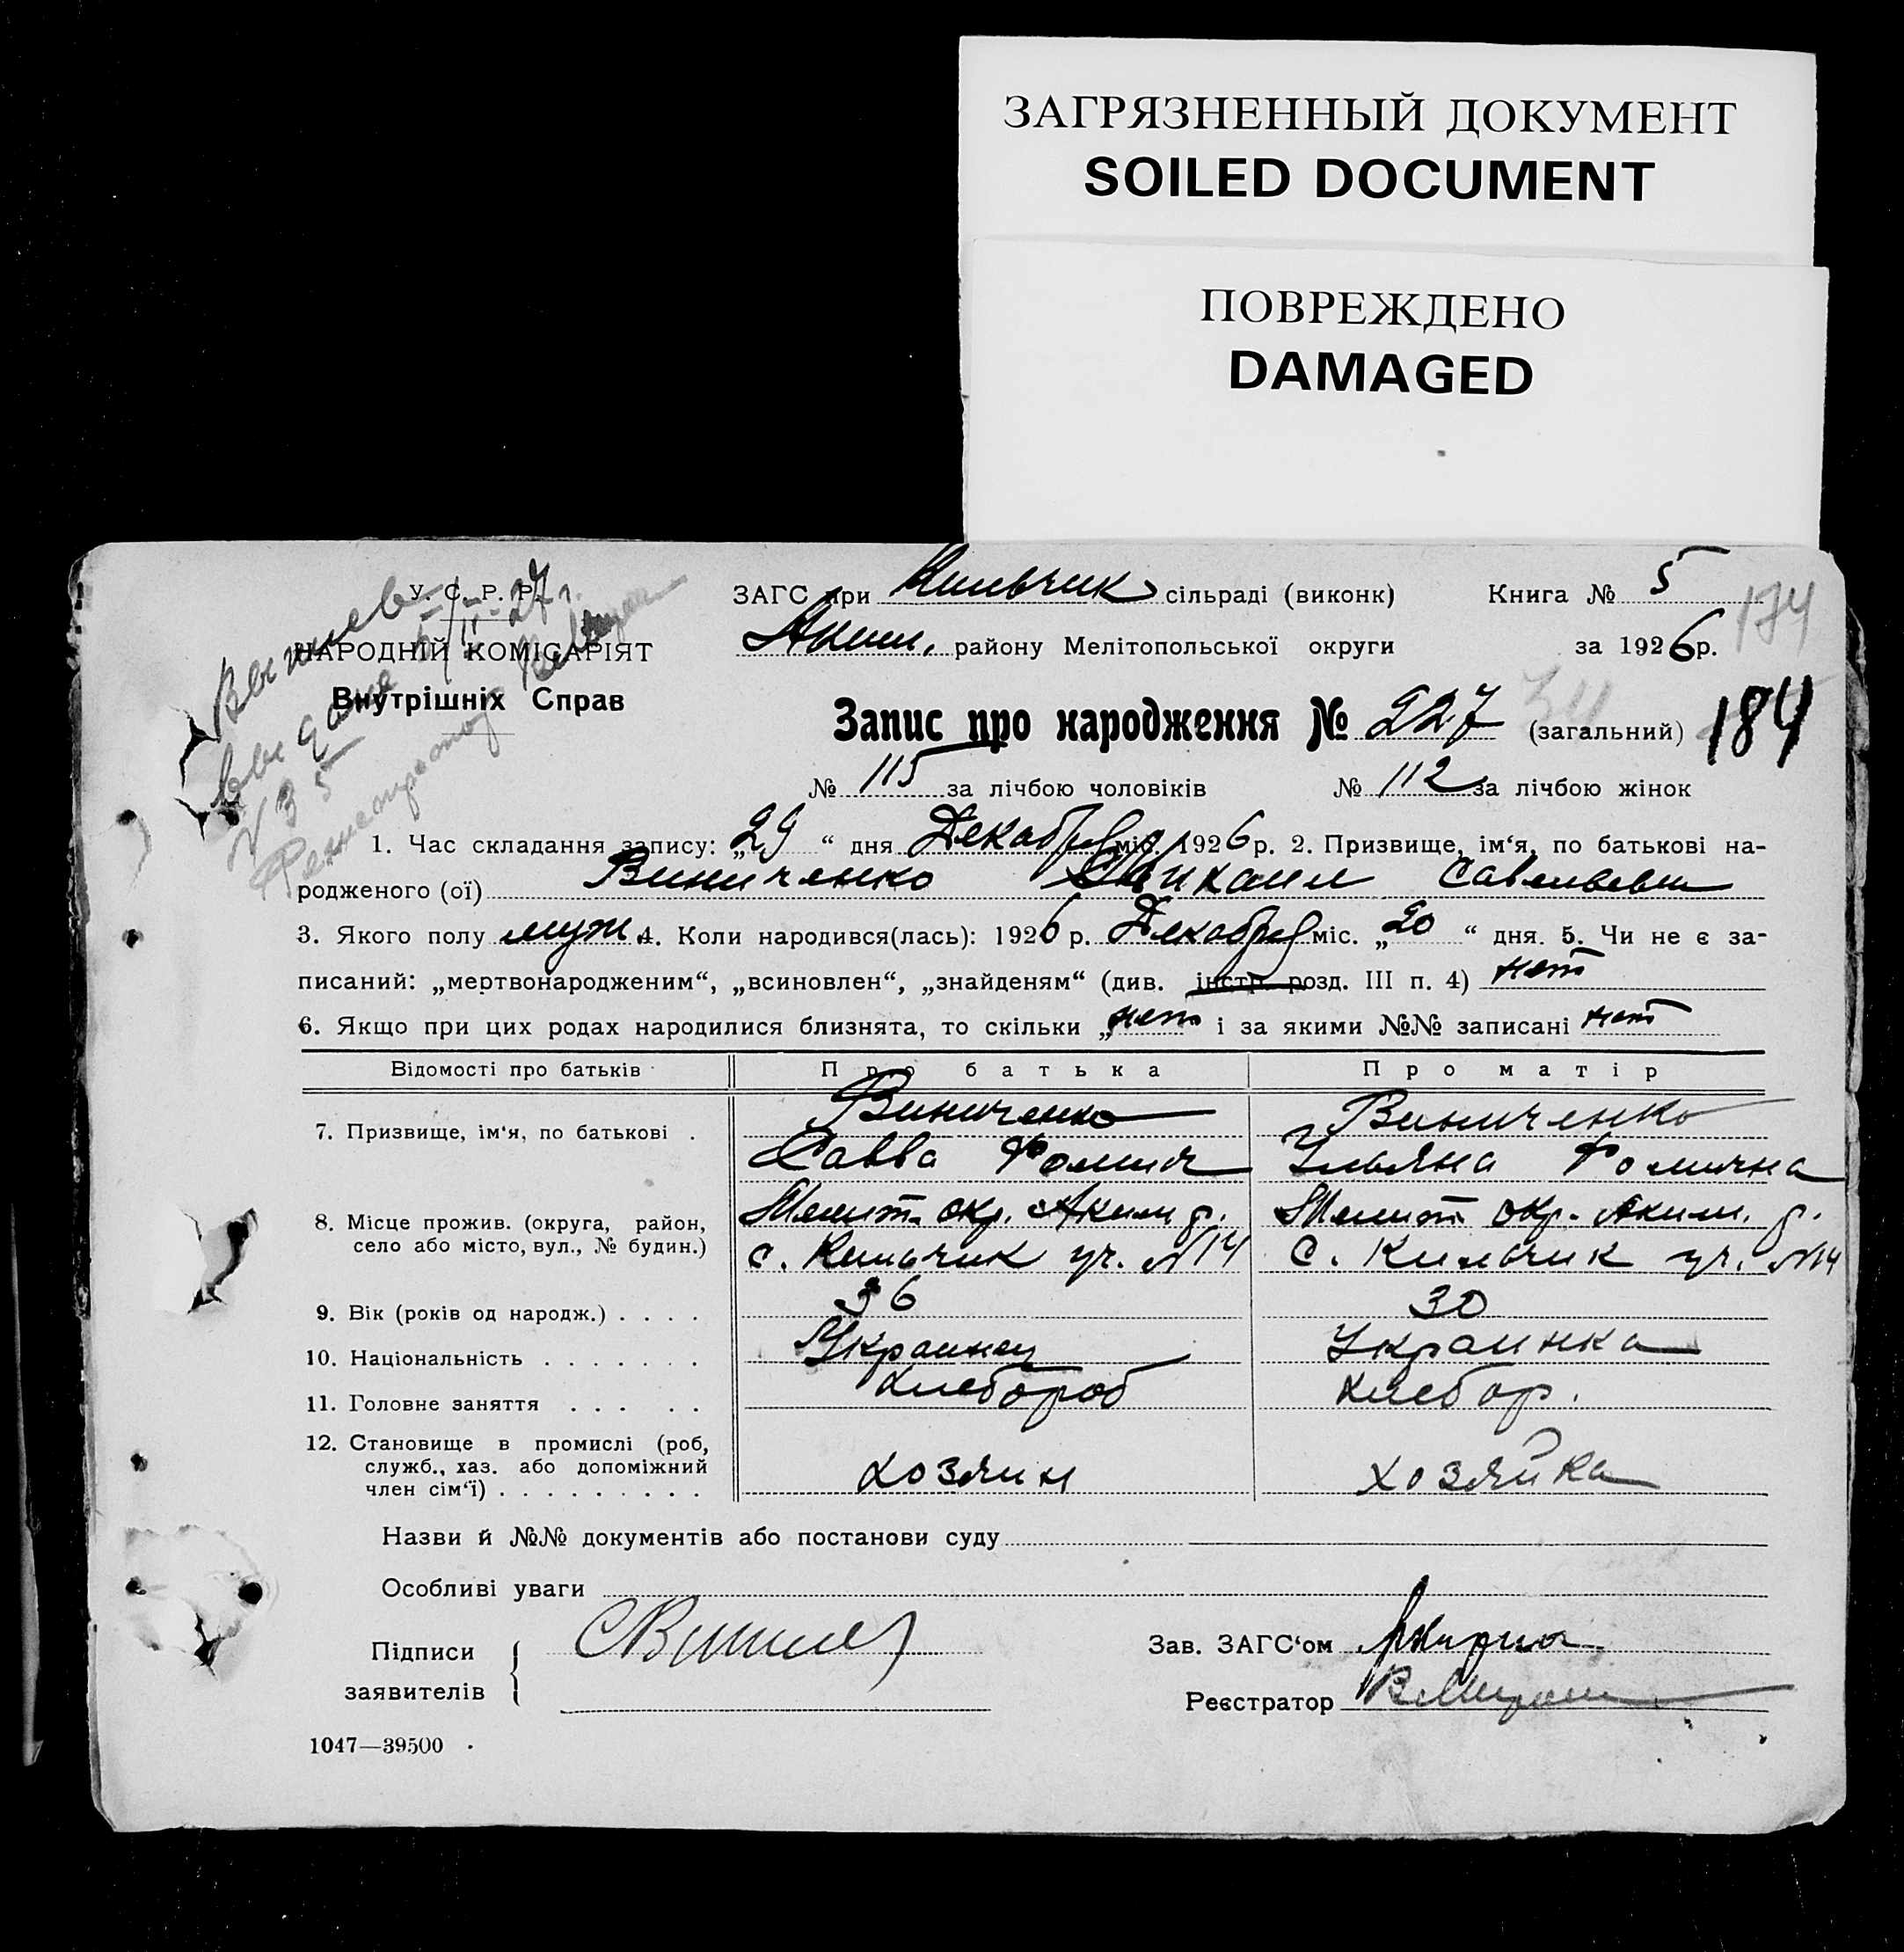 ЗАГРЯЗНЕННЫЙ ДОКУМЕНТ
SOILED DOCUMENT
ПОВРЕЖДЕНО
DAMAGED
У. С. Р. Р.
НАРОДНІЙ КОМІСАРІЯТ
Внутрішніх Справ
ЗАГС при Кильчик сільраді (виконк) Книга № 5
Аким. району Мелітопольської округи за 1926 р.
174
Запис про народження № 227 (загальний) 184
№ 115 за лічбою чоловіків № 112 за лічбою жінок
Выпись
выдана 5/II-27 г.
№ 35
Регистратор
1. Час складання запису: „29“ дня Декабря міс. 1926 р. 2. Призвище, ім‘я, по батькові на-
родженого (ої) Виниченко Михаил Савельевич
3. Якого полу муж. 4. Коли народився(лась): 1926 р. Декабря міс. „20“ дня. 5. Чи не є за-
писаний: „мертвонародженим“, „всиновлен“, „знайденям“ (див. інстр. розд. III п. 4) нет
6. Якщо при цих родах народилися близнята, то скільки „нет і за якими №№ записані нет
Відомості про батьків Про батька Про матір
7. Призвище, ім‘я, по батькові . Виниченко Виниченко
Савва Фомич Ульяна Фомична
8. Місце прожив. (округа, район, Мелит. окр. Аким р. Мелит. окр. Аким. р.
село або місто, вул., № будин.) с. Кильчик уч. №14 с. Кильчик уч. №14
9. Вік (років од народж.) . . . . 36 30
10. Національність . . . . . . . Украинец Украинка
11. Головне заняття . . . . . Хлебороб Хлебор.
12. Становище в промислі (роб,
служб., хаз. або допоміжний хозяин хозяйка
член сім‘ї) . . . . . . . . .
Назви й №№ документів або постанови суду
Особливі уваги
Підписи
заявителів
Зав. ЗАГС‘ом
Реєстратор
1047—39500